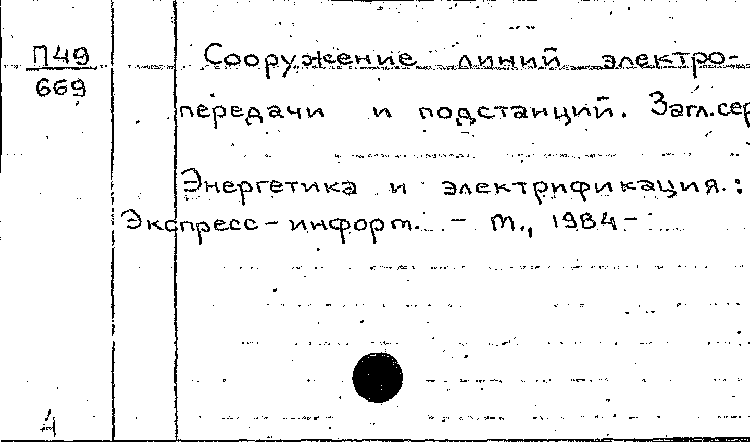 П49
669
Сооружение линий электро-
передачи и подстанций. Загл.сер
Энергетика и электрификация.:
Экспресс-информ. - М., 1984-